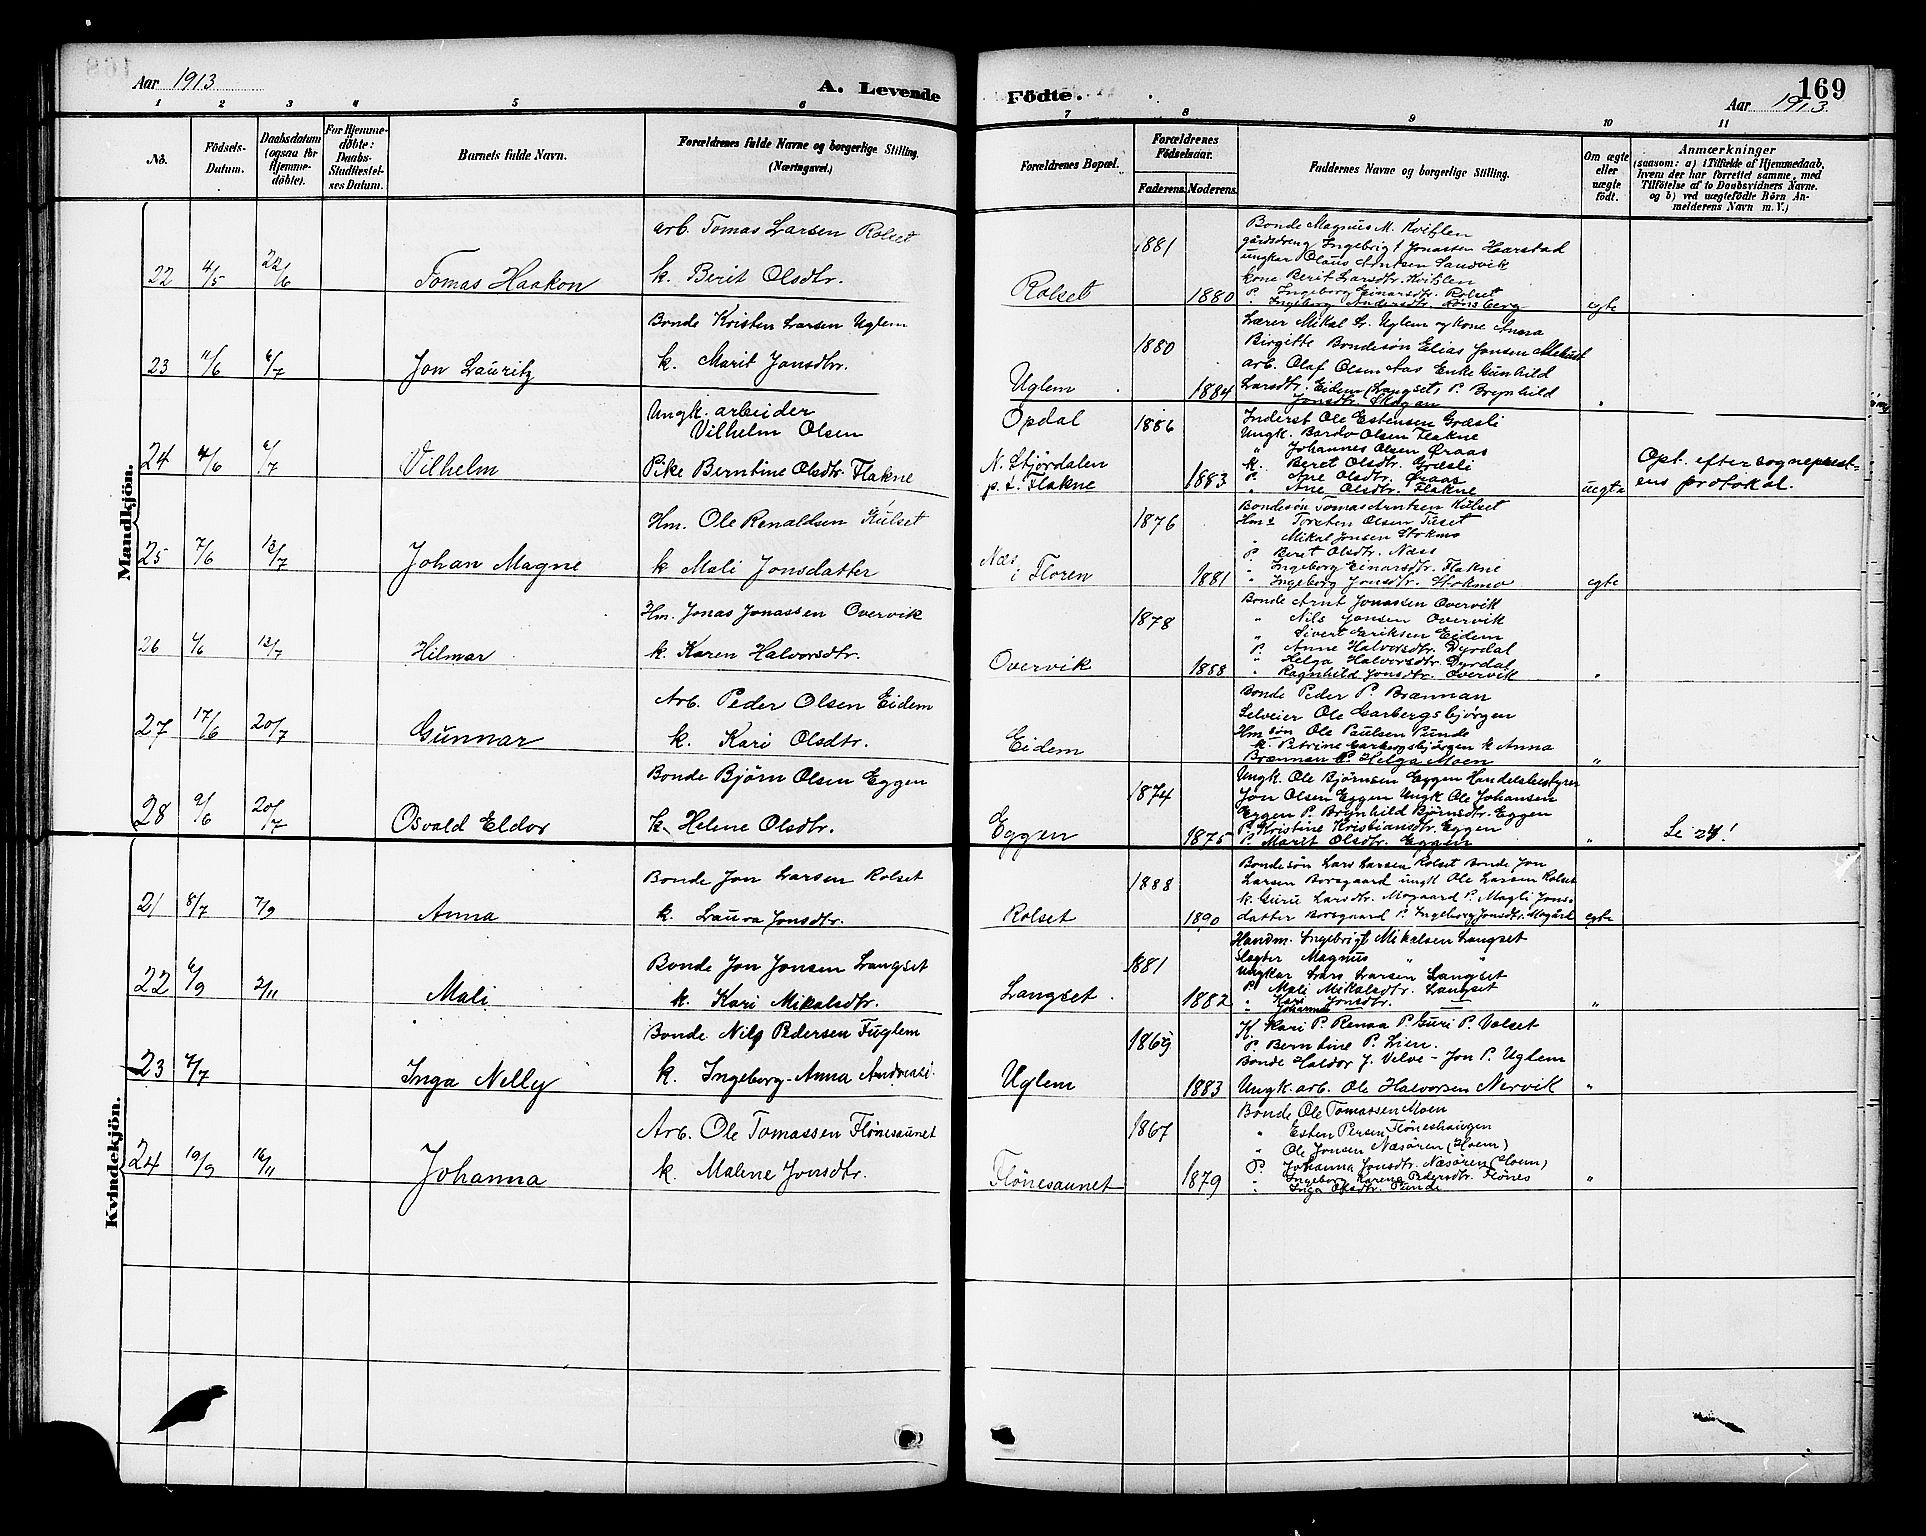 Aar 1913
A. Levende
Födte.
169
Aar 1913.
1 2 3 4 5 6 7 8 9 10 11
No.
Födsels-
Datum.
Daabsdatum
(ogsaa for
Hjemme-
döbte).
For Hjemme-
döbte:
Daabs-
Stadfæstel-
ses Datum.
Barnets fulde Navn.
Forældrenes fulde Navne og borgerlige Stilling.
(Næringsvei.)
Forældrenes Bopæl.
Forældrenes
Födselsaar.
Faderens. Moderens.
Faddernes Navne og borgerlige Stilling.
Om ægte
eller
uægte
født.
Anmærkninger
(saasom: a) i Tilfælde af Hjemmedaab,
hvem der har forrettet samme, med
Tilføtelse af to Daabsvidners Navne.
og b) ved uægtefödte Börn An-
melderens Navn m. V.)
Mandkjön.
22 4/5 22/6 Tomas Haakon
arb. Tomas Larsen Rolset
k. Berit Olsdtr.
Rolset 1881 1880
Bonde Magnus M. Kviflen
gårdsdreng Ingebrigt Jonassen Haarstad
ungkar Olaus Arntsen Sandvik
kone Berit Larsdtr. Kviflen
P. Ingeborg Einarsdtr. Rolset
Ingeborg Andersdtr. Rønsberg
egte
23 11/6 6/7 Jon Lauritz
Bonde Kristen Larsen Uglem
k. Marit Jonsdtr.
Uglem 1880 1884
Lærer Mikal L. Uglem og kone Anna
Birgitte Bondesøn Elias Jonsen
arb. Olaf Olsen Aas Enke Gunhild
Larsdtr. Eidem (Langset) P. Brynhild
Jonsdtr. Mogan
"
24 4/6 6/7 Vilhelm
Ungk. arbeider
Vilhelm Olsen
Pike Berntine Olsdtr. Flakne
Opdal
N. Stjördalen
p. t. Flakne
1886 1883
Inderst Ole Estensen Græsli
Ungk. Bardo Olsen Flakne
" Johannes Olsen Øraas
k. Beret Olsdtr. Græsli
P. Ane Olsdtr. Øraas
" Ane Olsdtr. Flakne
uegte
Opt. efter sogneprest-
ens protokol.
25 7/6 13/7 Johan Magne
Hm. Ole Renaldsen Kulset
k Mali Jonsdatter
Næs
i Floren
1876 1881
Bondesøn Tomas Arntsen Kulset
Hm s Torsten Olsen Tuset
" Mikal Jonsen Stokmo
P. Beret Olsdtr. Næss
" Ingeborg Einarsdtr. Flakne
" Ingeborg Jonsdtr. Stokmo
egte
26 6/6 13/7 Hilmar
Hm. Jonas Jonassen Overvik
k. Karen Halvorsdtr.
Overvik 1878 1888
Bonde Arnt Jonassen Overvik
" Nils Jonsen Overvik
" Sivert Eriksen Eidem
P. Anne Halvorsdtr. Dyrdal
" Helga Halvorsdtr. Dyrdal
" Ragnhild Jonsdtr. Overvik
"
27 17/6 20/7 Gunnar
Arb. Peder Olsen Eidem
k. Kari Olsdtr.
Eidem
Bonde Peder P. Brænnan
Selveier Ole Garbergsbjørgen
Hm søn Ole Paulsen Runde
k. Petrine Garbergsbjørgen k Anna
Brænnan P. Helga Moen
"
28 9/6 20/7 Osvald Eldor
Bonde Björn Olsen Eggen
k. Helene Olsdtr.
Eggen 1874 1875
Ungk. Ole Bjørnsen Eggen Handelsbestyrer
Jon Olsen Eggen Ungk Ole Johansen
Eggen P. Brynhild Bjørnsdtr. Eggen
P. Kristine Kristiansdtr. Eggen
P. Marit Olsdtr. Eggen
"
Se 24!
Kvindekjön.
21 8/7 7/9 Anna
Bonde Jon Larsen Rolset
k. Laura Jonsdtr.
Rolset 1888 1890
Bondesøn Lars Larsen Rolset Bonde Jon
Larsen Borsgaard ungk Ole Larsen Rolset
k. Guru Larsdtr. Mogaard P. Magli Jons-
datter Borsgaard P. Ingeborg Jonsdtr. Mogård
egte
22 6/9 2/11 Mali
Bonde Jon Jonsen Langset
k. Kari Mikalsdtr.
Langset 1881 1882
Handm. Ingebrigt Mikalsen Langset
Slagter Magnus " "
Ungkar Lars Larsen Langset
P. Mali Mikalsdtr. Langset
" Kari Jonsdtr. —
" Johanna
"
23 4/7 Inga Nelly
Bonde Nils Pedersen Fuglem
k. Ingeborg Anna
Uglem 1869 1883
K. Kari P. Renaa P. Guri P. Volset
P. Berntine P. Lien.
Bonde Haldor J. Velve – Jon P. Uglem
Ungk. arb. Ole Halvorsen Nervik
"
24 19/9 16/11 Johanna
Arb. Ole Tomassen Flönesaunet
k. Malene Jonsdtr.
Flönesaunet 1867 1879
Bonde Ole Tomassen Moen
" Esten Persen Flöneshaugen
" Ole Jonsen Næsören (Hoem)
P. Johanna Jonsdtr. Næsören (Hoem)
" Ingeborg Karena Pedersdtr. Flönes
" Inga Olsdtr. Runde
"